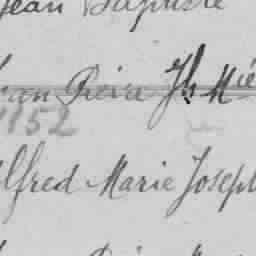 Jean Baptiste
Jean Pierre Jh Mié
1852
Alfred Marie Joseph